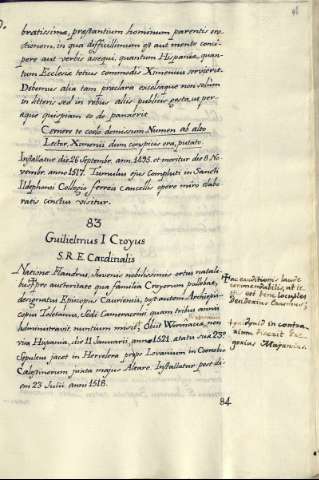 bratissima, præstantium hominum parentis
ctionem, in qua difficillimum est aut mente conci-
pere aut verbis assequi, quantum Hispaniæ, quan-
tum Ecclesiæ totius commodis Ximenius servierit.
Debemus alia tam præclara excelsaque non solum
in litteris sed in rebus aliis publice gesta, ut per-
aque quispiam eo de
Cernere te coelo demissum Numen ab alto
Lector, Ximenii dum conspicis ora, putato.
Installatur die 26 Septembr. ann. 1495. et moritur die 8 No-
vembr. anno 1517. Tumulus ejus Compluti in Sancti
Ildephonsi Collegio ferreis cancellis opere miro elabo-
ratis cinctus visitur.
83
Guilielmus I Croyus
S. R. E. Cardinalis
Natione Flandrus Juvenis nobilissimis ortus natali-
bus, pro austeritate qua familia Croyorum pollebat,
designatus Episcopus Cauriensis, postautem Archiepis-
copus Toletanus, Sede Cameracensi quam tribus annis
administravit nuntium misit, Obiit Wormacia, non
via Hispania, die 11 Januarii, anno 1521. ætatis suæ 23º
Sepultus jacet in Hevelera prope Lovanium in Cœnobio
Cælestinorum juxta majus Altare. Installatur post di-
em 23 Julii ann. 1518.
ac eruditionis laude
commendabilis, ut te-
stis est bene locuples
Desiderius
quid in contra-
rium dicat
84